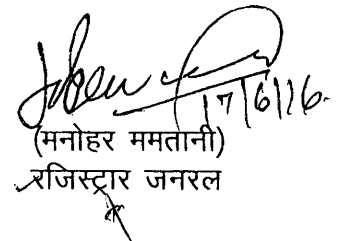 17/6/16.
(मनोहर ममतानी)
रजिस्ट्रार जनरल